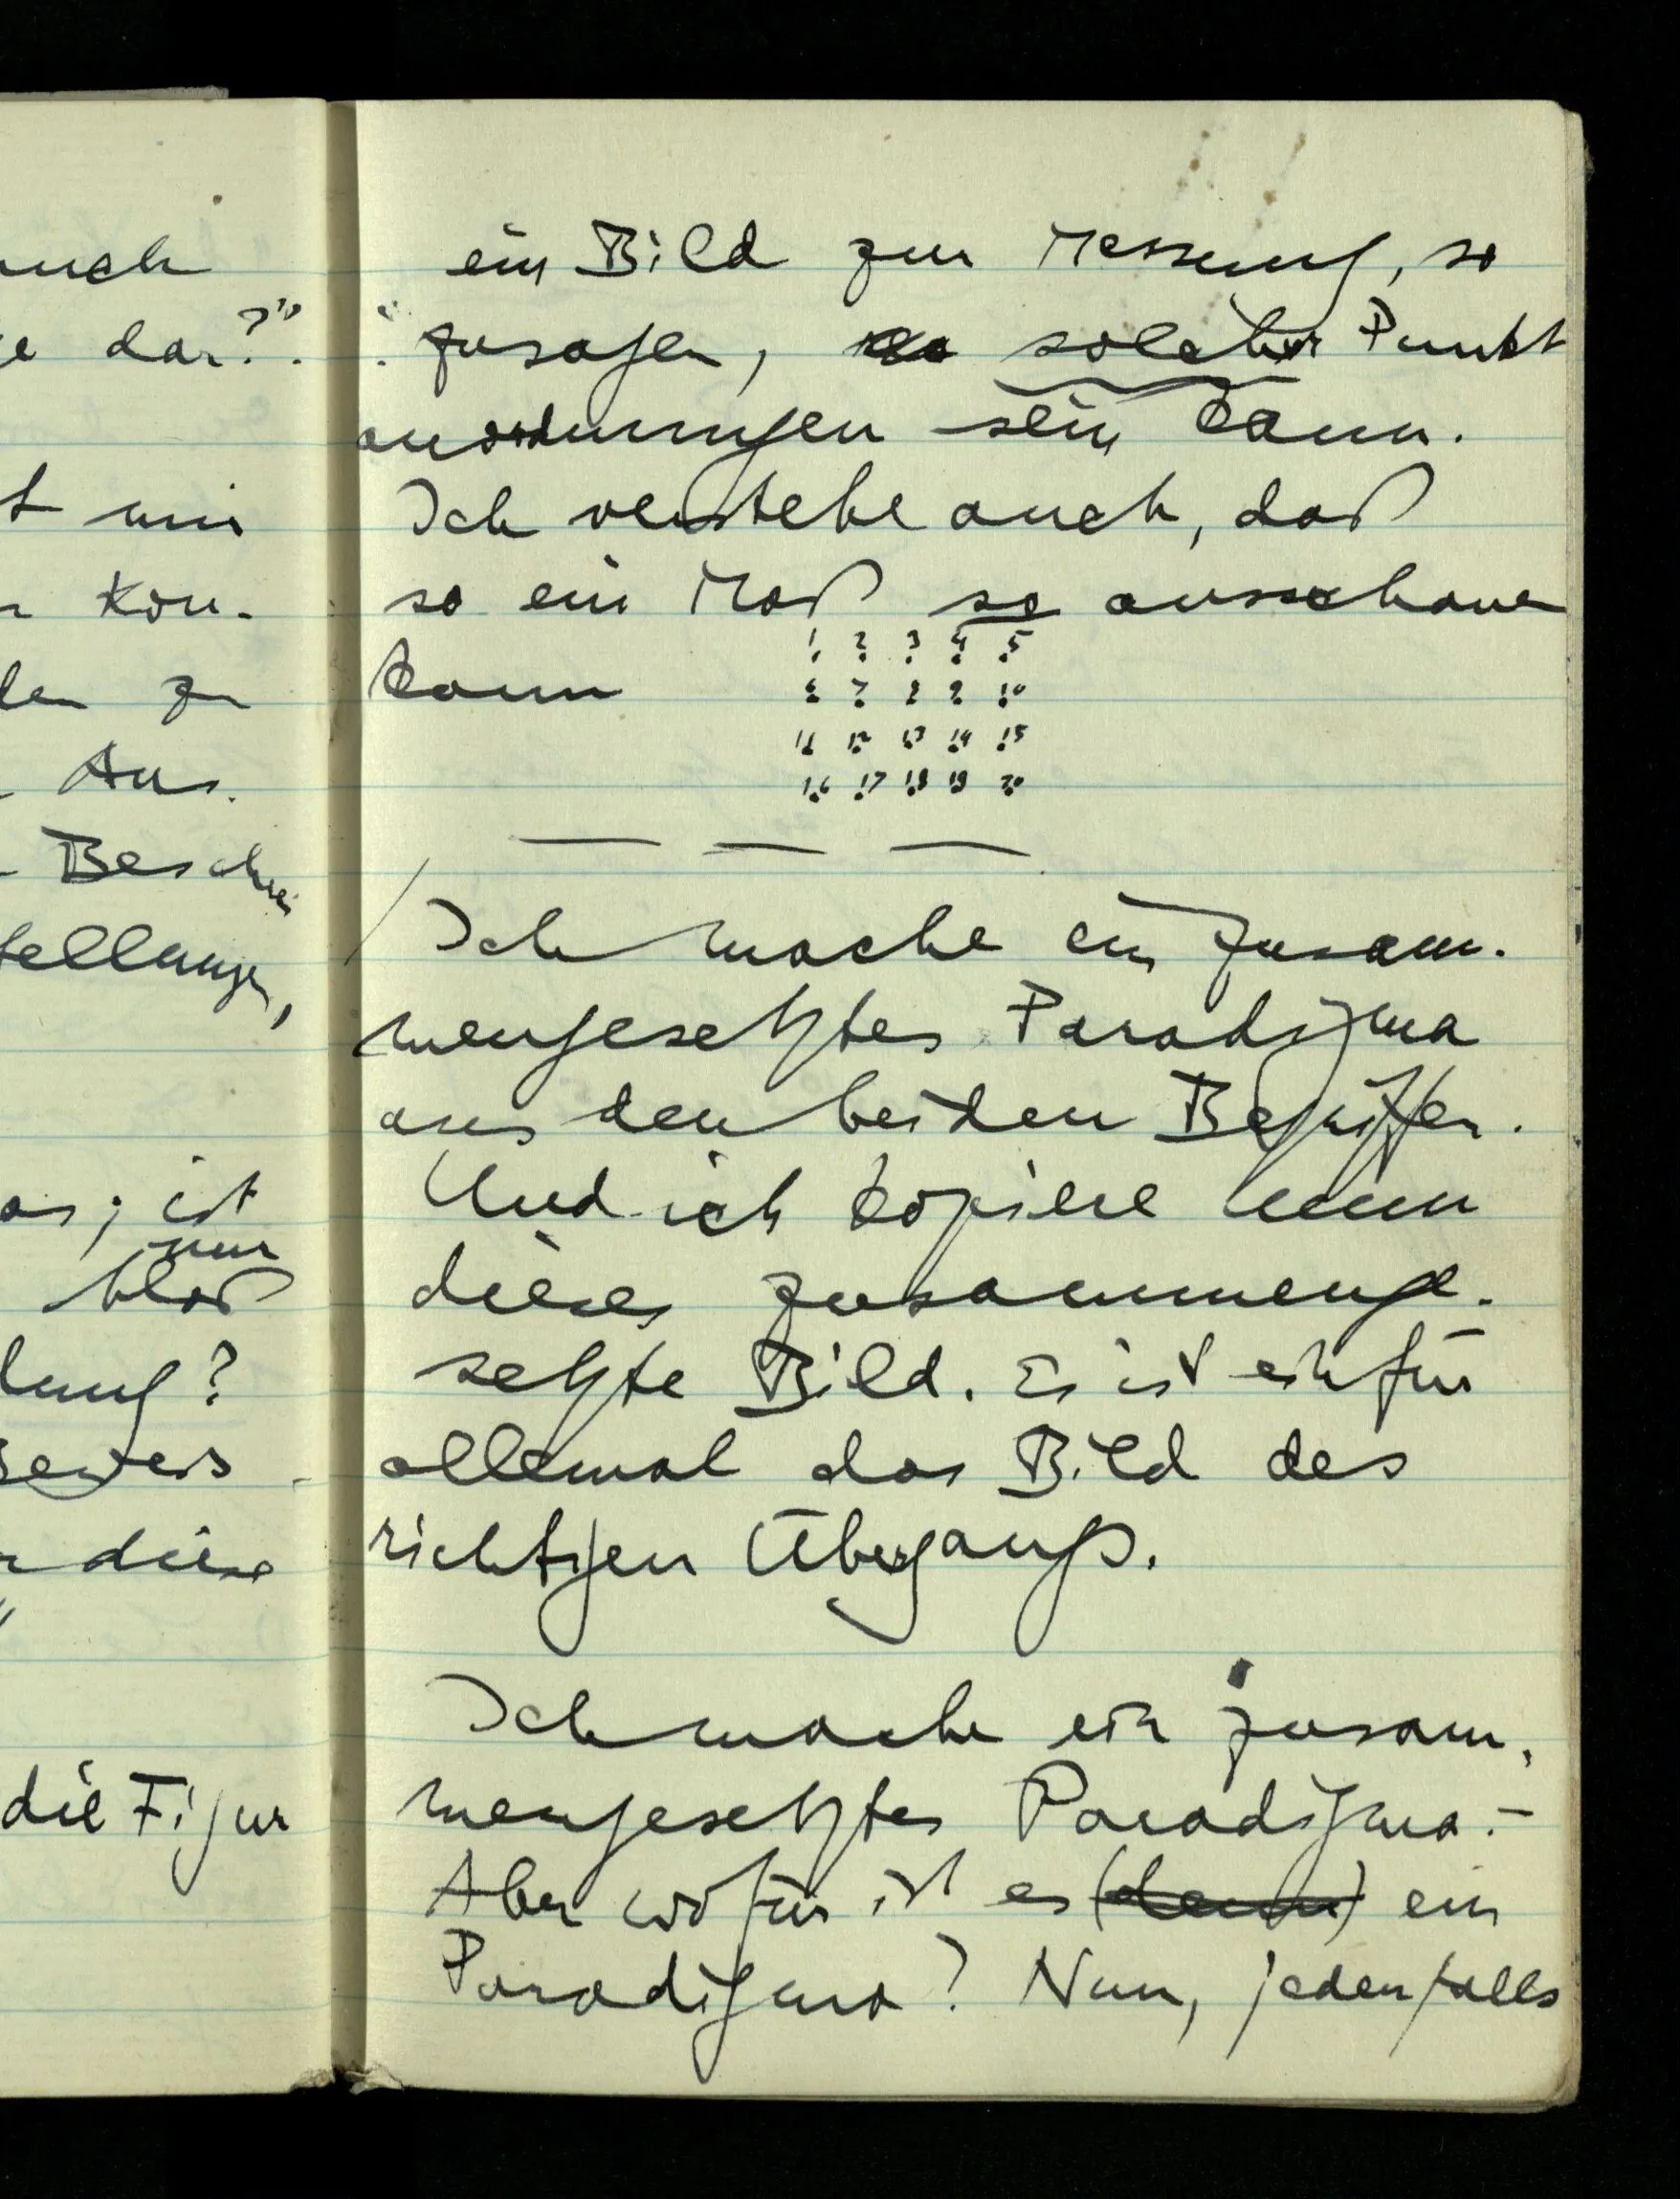 uch
e dar?".
t mir
n Kon-
den zu
Aus.
Beschrei
tellungen,
as; ist
nur
bloß
dung?
Beweis
n diese
die Figur
ein Bild zur Messung, so
zusagen, solcher Punkt
anordnungen sein kann.
Ich verstehe auch, daß
so ein Maß so ausschauen
kann
1 2 3 4 5
6 7 8 9 10
11 12 13 14 15
16 17 18 19 20
Ich mache ein zusam-
mengesetztes Paradigma
aus den beiden Begriffen.
Und ich kopiere nun
dieses zusammenge-
setzte Bild. Es ist ein für
allemal das Bild des
richtigen Übergangs.
Ich mache ein zusam-
mengesetztes Paradigma. –
Aber wofür ist es (denn) ein
Paradigma? Nun, jedenfalls